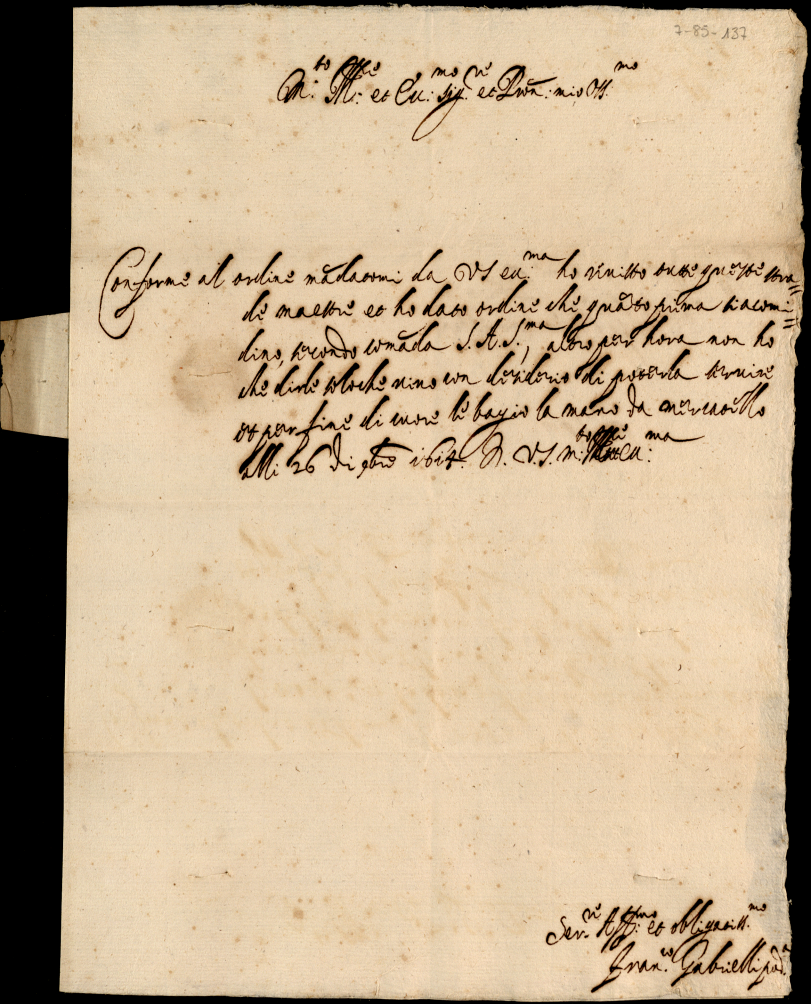 7-85-137
M.to Ill.re et Ecc.mo sig.re et Pron: mio oss.mo
Conforme al ordine mãdatomi da VS ecc.ma ho visitto tutte queste stra=
de maestre et ho dato ordine che quãto prima si acomi=
dino, secondo comãda S.A.S.ma, altro per hora non ho
che dirle solo che vivo con desiderio di poterla servire
et per fine di cuore le bagio la mano da mercatello
alli 26 di 9bre 1614. D. V.S. m.to Ill.re et ecc.ma
Ser.re Aff.mo et obligatiss.mo
Fran.co Gabrielli pod.a